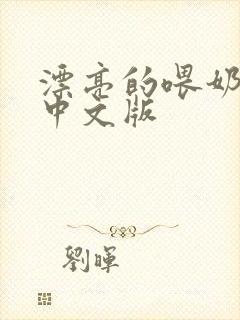 漂亮的喂奶
中文版
劉暉